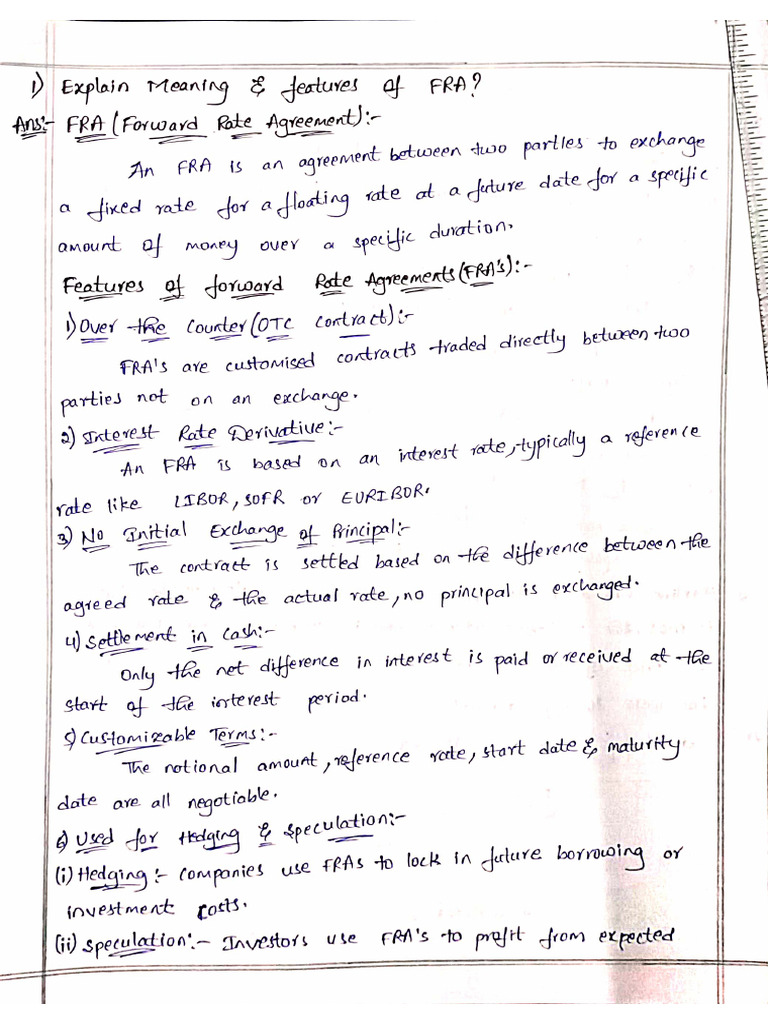 1) Explain Meaning & features of FRA?
Ans:- FRA (Forward Rate Agreement):-
An FRA is an agreement between two parties to exchange
a fixed rate for a floating rate at a future date for a specific
amount of money over a specific duration.
Features of forward Rate Agreements (FRA's):-
1) Over the Counter (OTC Contract):-
FRA's are customised contracts traded directly between two
parties not on an exchange.
2) Interest Rate Derivative:-
An FRA is based on an interest rate, typically a reference
rate like LIBOR, SOFR or EURIBOR.
3) No Initial Exchange of Principal:-
The contract is settled based on the difference between the
agreed rate & the actual rate, no principal is exchanged.
4) Settlement in Cash:-
Only the net difference in interest is paid or received at the
start of the interest period.
5) Customizable Terms:-
The notional amount, reference rate, start date & maturity
date are all negotiable.
6) Used for Hedging & Speculation:-
(i) Hedging:- Companies use FRAs to lock in future borrowing or
investment costs.
(ii) Speculation:- Investors use FRA's to profit from expected